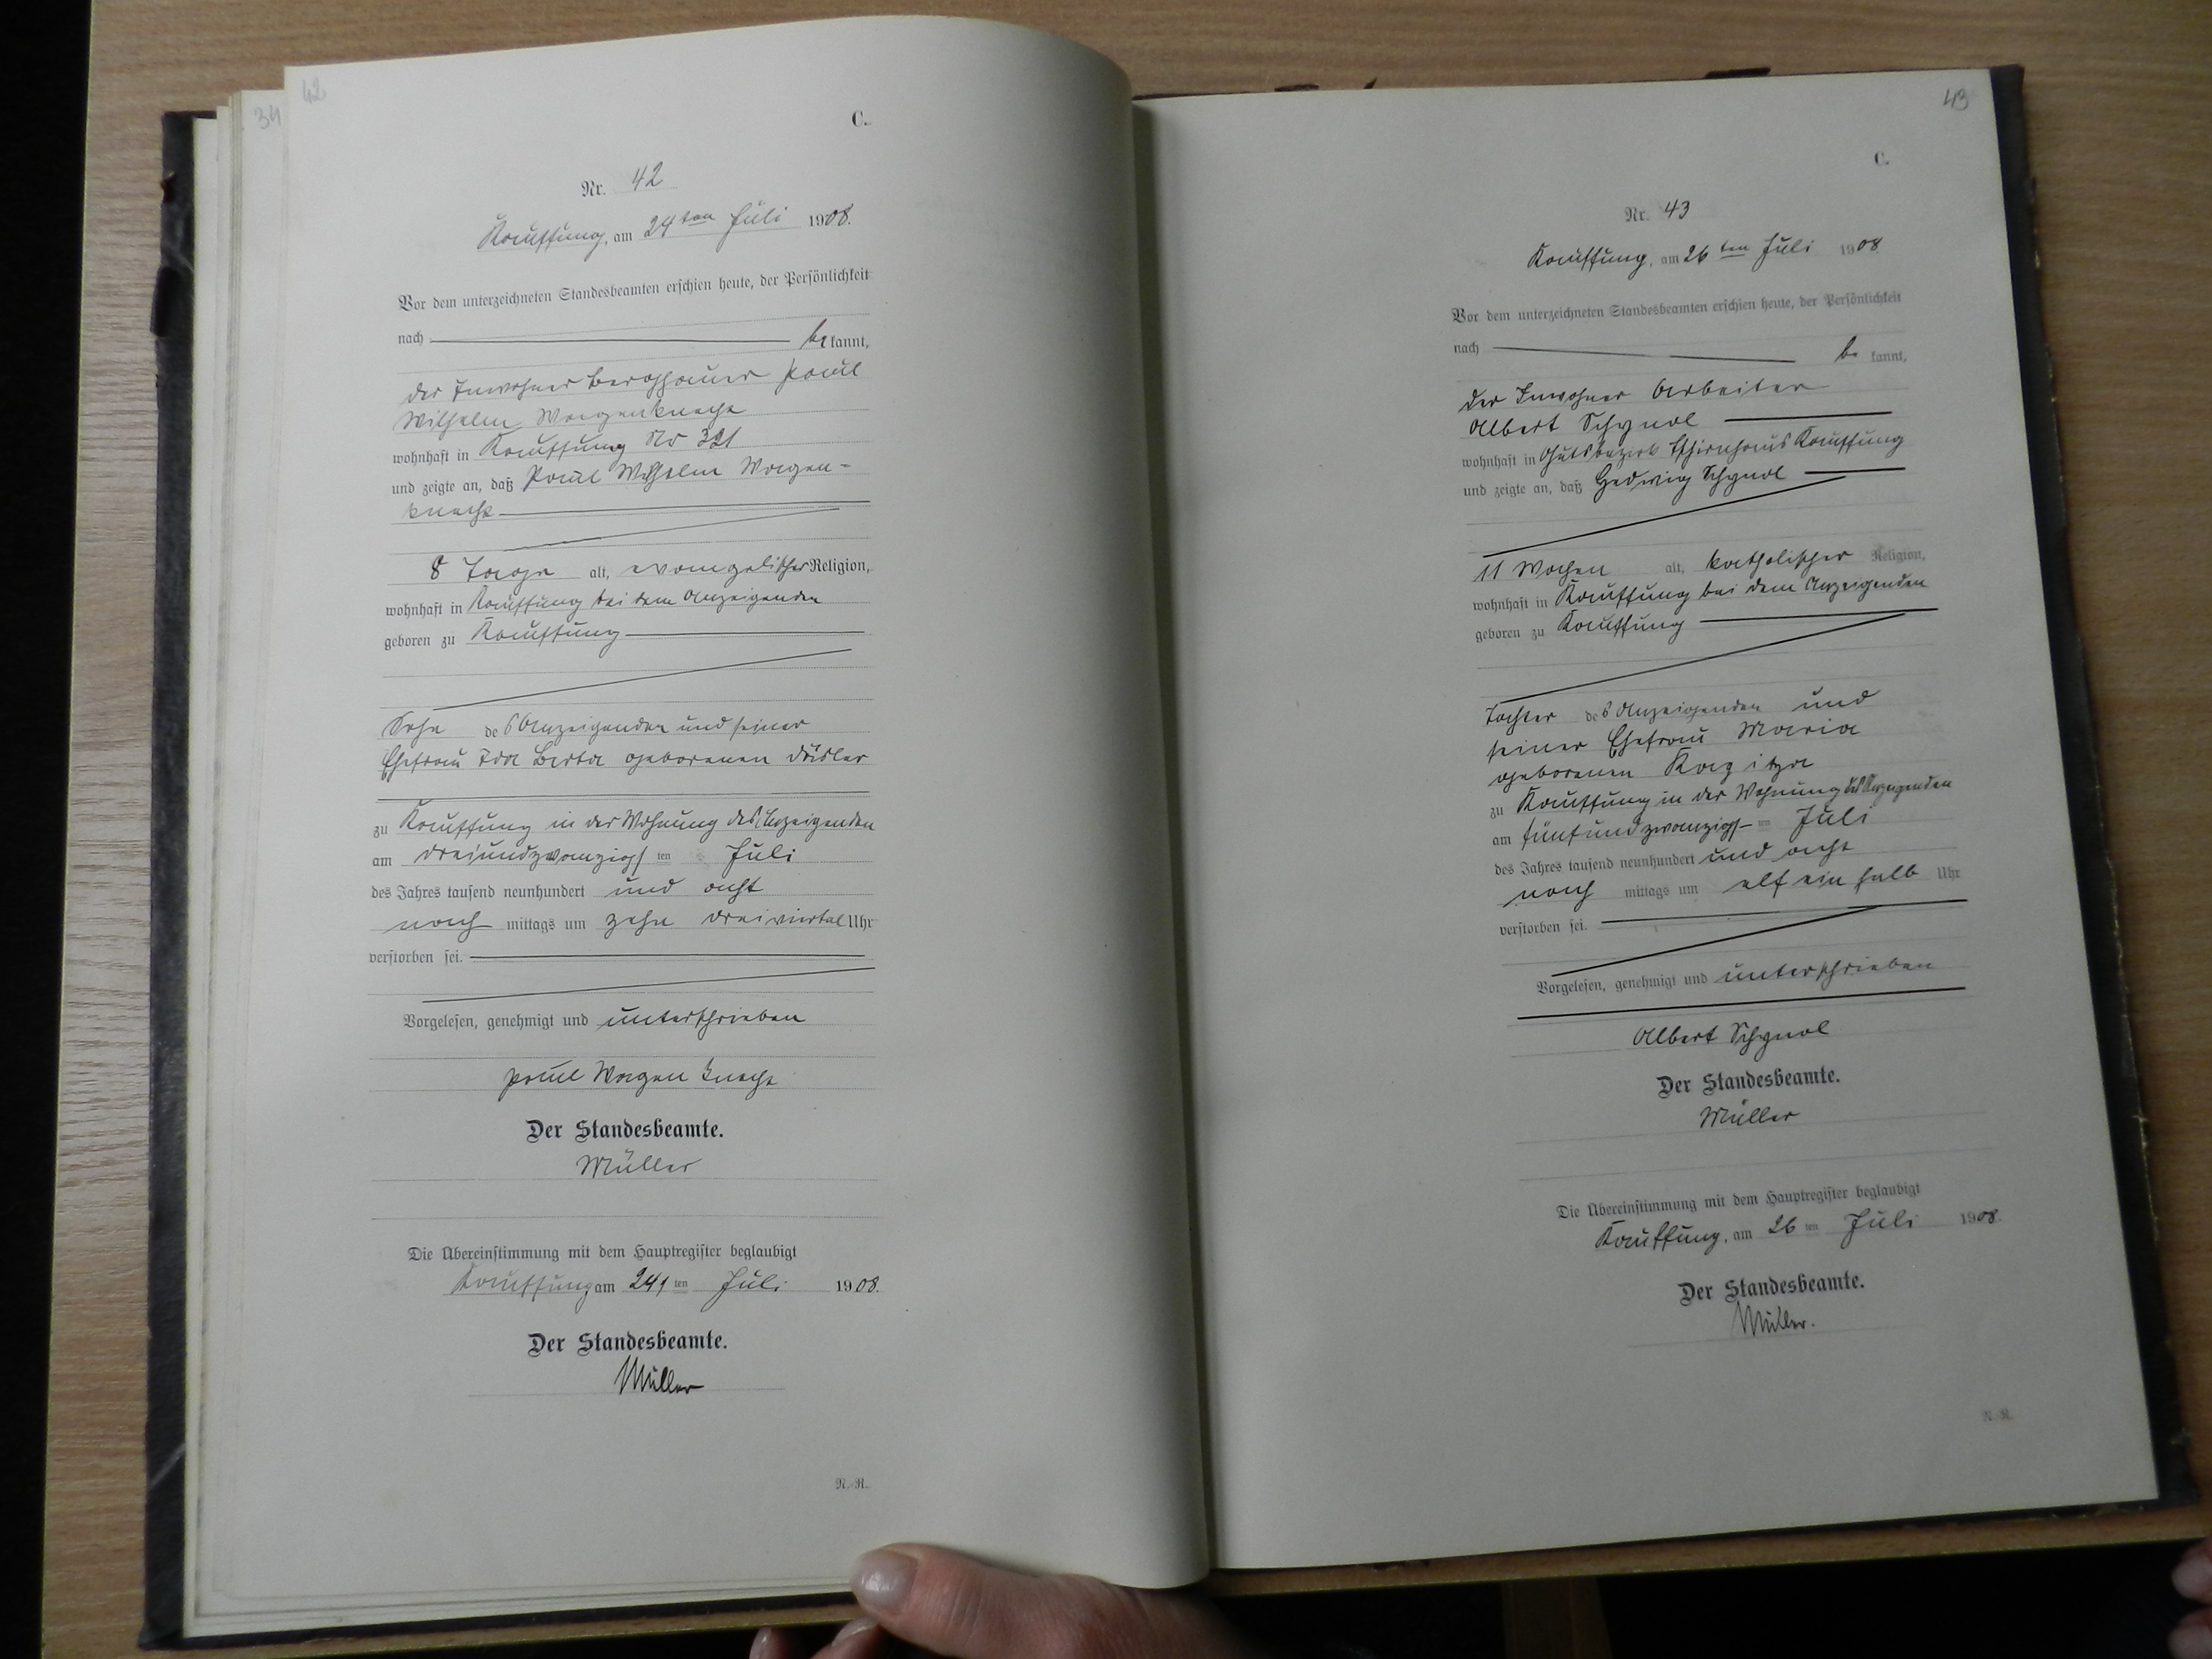 34
42
C.
Nr. 42
Kauffung, am 24ten Juli 1908.
Vor dem unterzeichneten Standesbeamten erschien heute, der Persönlichkeit
nach be kannt,
der Inwohner Berghauer Paul
Wilhelm Wagenknecht
wohnhaft in Kauffung No 321
und zeigte an, daß Paul Wilhelm Wagen-
knecht
8 Tage alt, evangelischer Religion,
wohnhaft in Kauffung bei dem Anzeigenden
geboren zu Kauffung
Sohn des Anzeigenden und seiner
Ehefrau Ida Berta geborenen
zu Kauffung in der Wohnung des Anzeigenden
am dreiundzwanzigsten Juli
des Jahres tausend neunhundert und acht
nach mittags um zehn dreiviertel Uhr
verstorben sei.
Vorgelesen, genehmigt und unterschrieben
Paul Wagenknecht
Der Standesbeamte.
Müller
Die Übereinstimmung mit dem Hauptregister beglaubigt
Kauffung am 24ten Juli 1908.
Der Standesbeamte.
Müller
N.-R.
43
C.
Nr. 43
Kauffung, am 26ten Juli 1908.
Vor dem unterzeichneten Standesbeamten erschien heute, der Persönlichkeit
nach be kannt,
der Inwohner Arbeiter
Albert Schynol
wohnhaft in Gutsbezirk Tschirnhaus Kauffung
und zeigte an, daß Hedwig Schynol
11 Wochen alt, katholischer Religion,
wohnhaft in Kauffung bei dem Anzeigenden
geboren zu Kauffung
Tochter des Anzeigenden und
seiner Ehefrau Maria
geborenen
zu Kauffung in der Wohnung des Anzeigenden
am fünfundzwanzigsten Juli
des Jahres tausend neunhundert und acht
nach mittags um elf ein halb Uhr
verstorben sei.
Vorgelesen, genehmigt und unterschrieben
Albert Schynol
Der Standesbeamte.
Müller
Die Übereinstimmung mit dem Hauptregister beglaubigt
Kauffung, am 26ten Juli 1908.
Der Standesbeamte.
Müller.
N.-R.